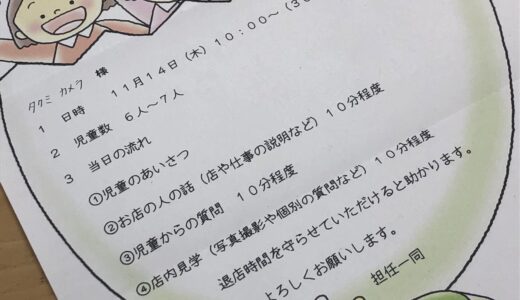 タクミ カメラ 様
1 日時 11月14日(木)10:00~(30
2 児童数 6人~7人
3 当日の流れ
①児童のあいさつ
②お店の人の話(店や仕事の説明など)10分程度
③児童からの質問 10分程度
④店内見学(写真撮影や個別の質問など)10分程度
退店時間を守らせていただけると助かります。
よろしくお願いします。
担任一同